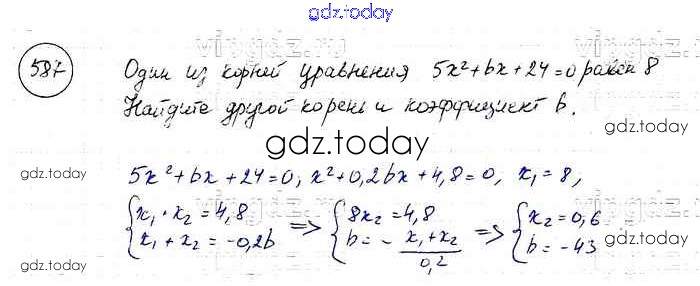 gdz.today
587
Один из корней уравнения 5x²+bx+24=0 равен 8
Найдите другой корень и коэффициент b.
gdz.today
gdz.today
gdz.today
5x²+bx+24=0, x²+0,2bx+4,8=0, x₁=8,
{x₁·x₂=4,8 => {8x₂=4,8 => {x₂=0,6
{x₁+x₂=-0,2b {b=-(x₁+x₂)/0,2 {b=-43
gdz.today
gdz.today